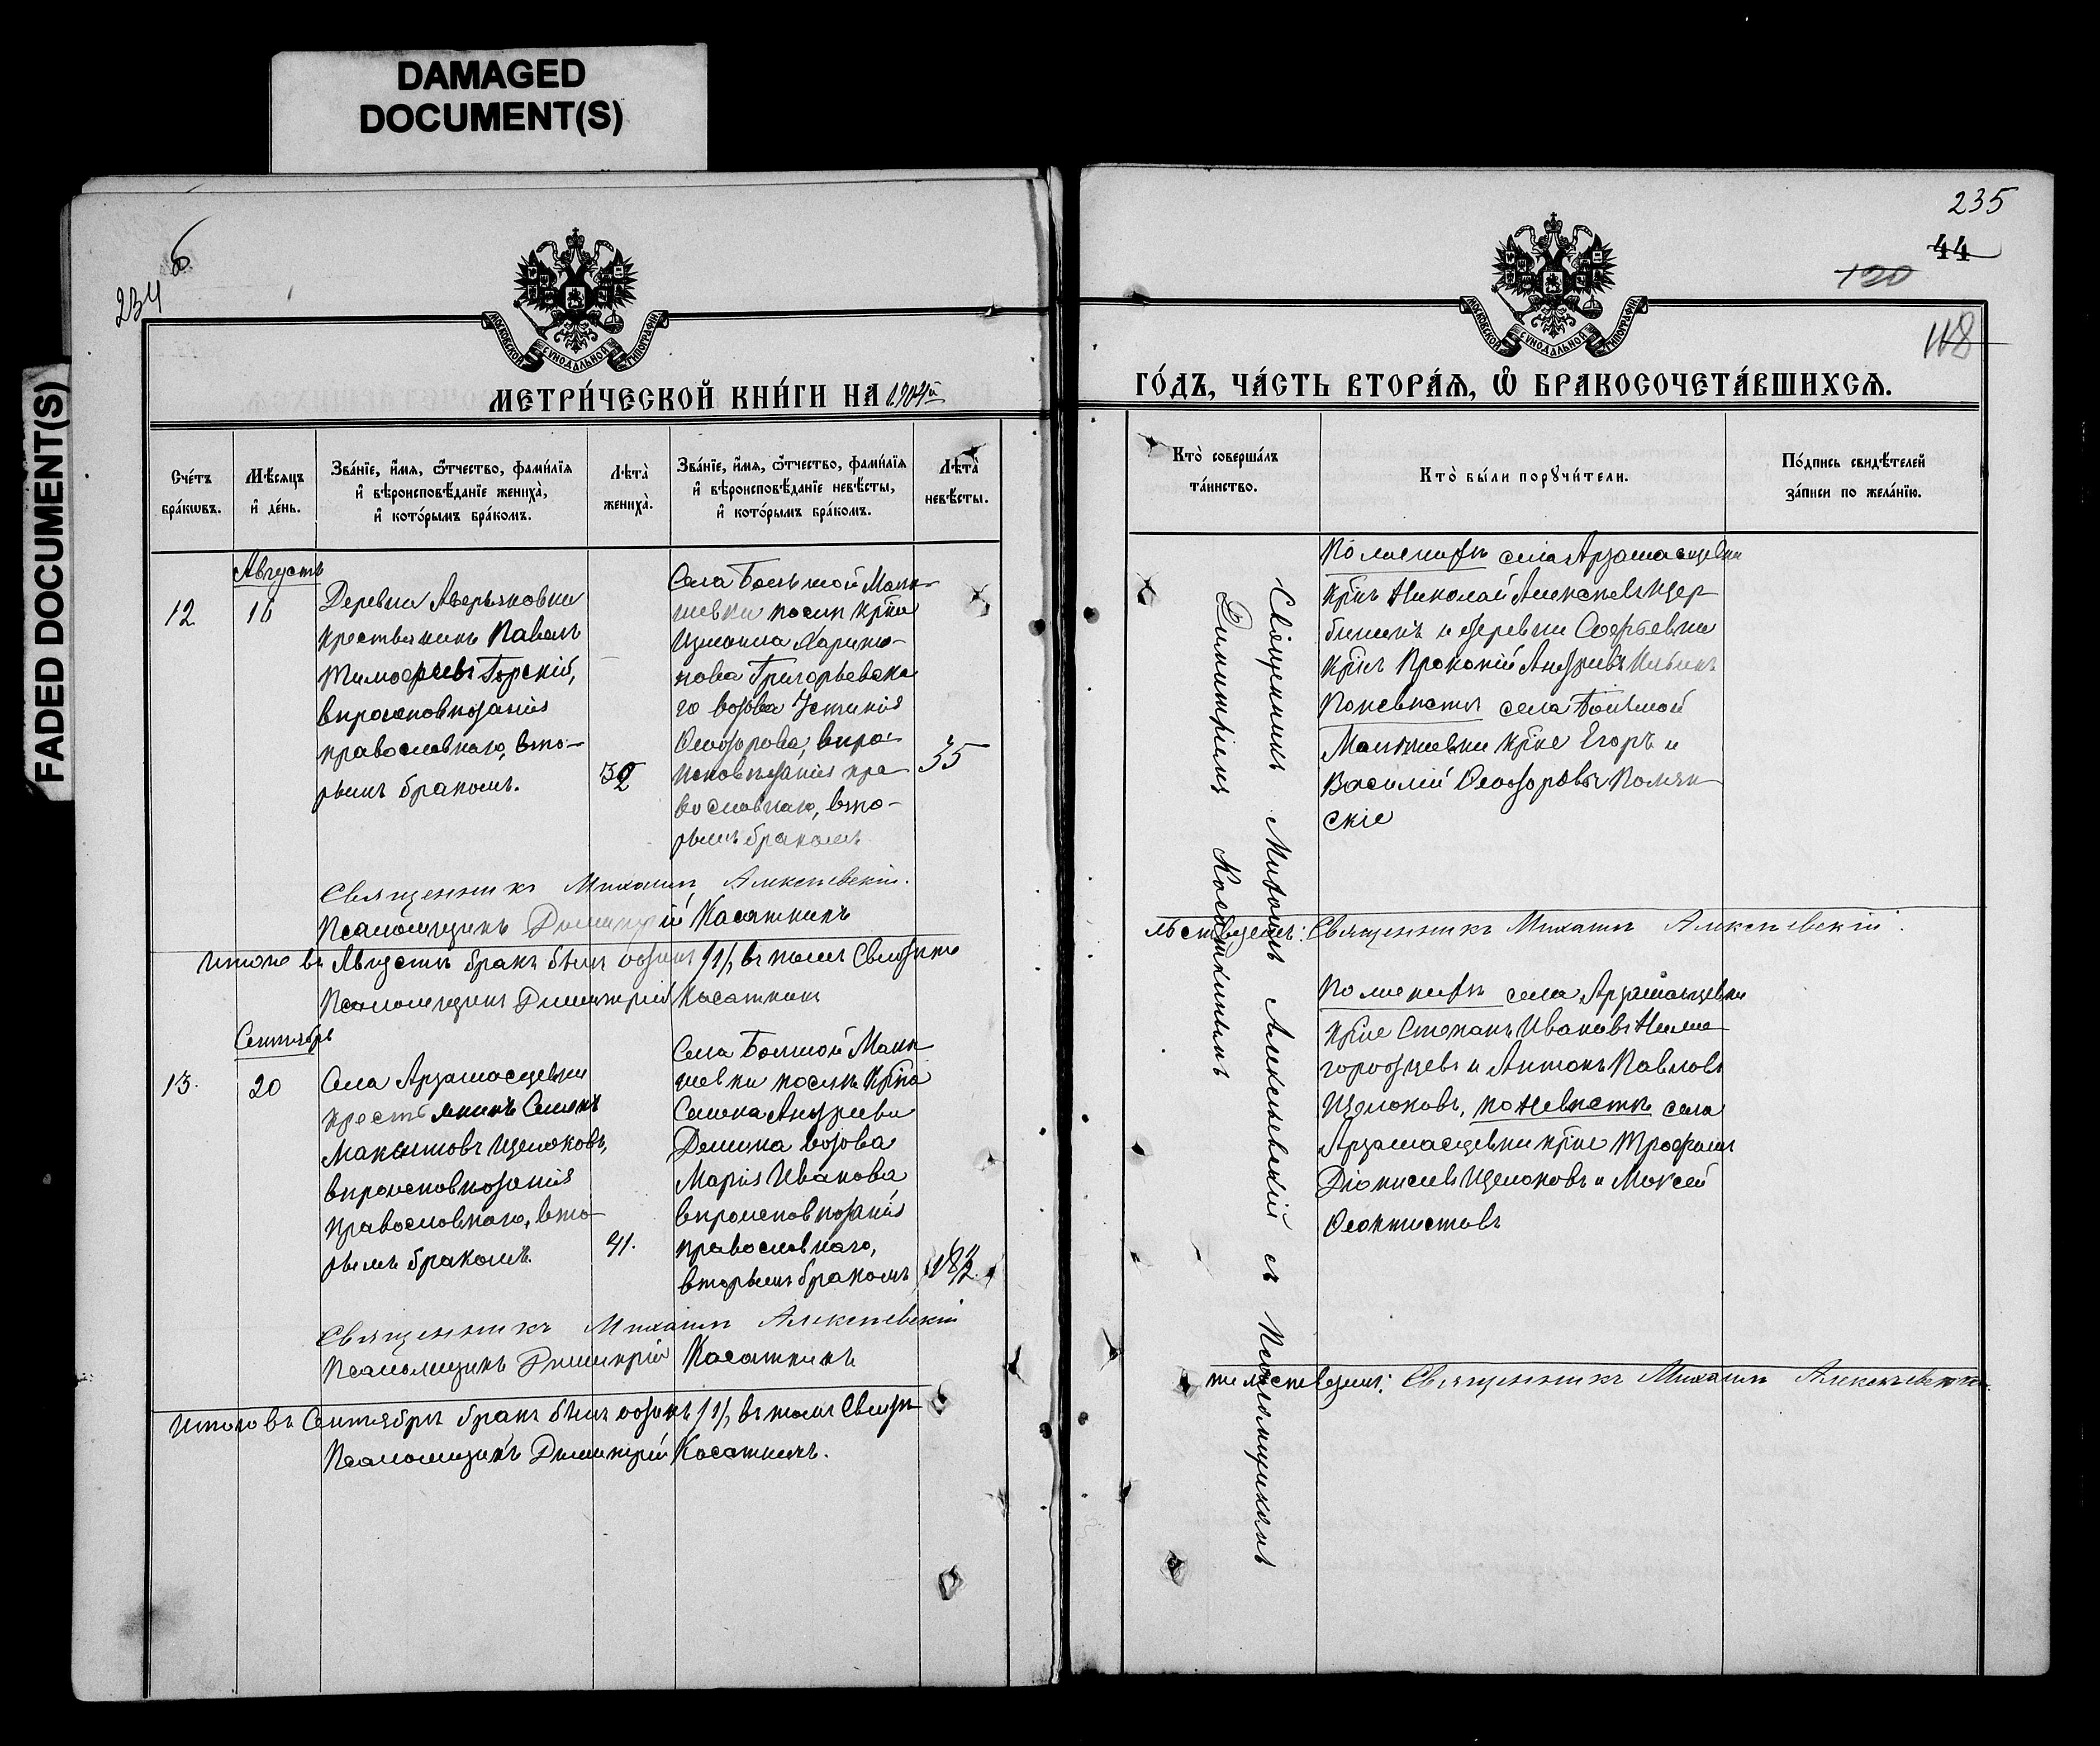 DAMAGED
DOCUMENT(S)
FADED DOCUMENT(S)
234
6
МОСКОВСКОЙ СѴНОДАЛЬНОЙ ТИПОГРАФІИ
МЕТРИ́ЧЕСКОЙ КНИ́ГИ НА 1904й
Сче́тъ
бра́кѡвъ.
Мѣ́сяцъ
и҆ де́нь.
Зва́нїе, и҆́мя, ѻ҆́тчество, фами́лїя
и҆ вѣроисповѣ́данїе жениха̀,
и҆ кото́рымъ бра́комъ.
Лѣта̀
жениха̀.
Зва́нїе, и҆́мя, ѻ҆́тчество, фами́лїя
и҆ вѣроисповѣ́данїе невѣ́сты,
и҆ кото́рымъ бра́комъ.
Лѣта̀
невѣ́сты.
Августъ
12
16
Деревни Аверьяновки
крестьянинъ Павелъ
Тимоѳеевъ Горскій,
вѣроисповѣданія
православнаго, вто-
рымъ бракомъ.
32
Села Большой Маты-
шевки посел. кр-на
Измаила
Григорьевска-
го вдова Устинія
Ѳеодорова, вѣро-
исповѣданія пра-
вославнаго, вто-
рымъ бракомъ
35
Священникъ Михаилъ Алексѣевскій.
Псаломщикъ Димитрій Касаткинъ
Итого въ Августѣ бракъ былъ одинъ /1/, въ томъ Свидѣте
Псаломщикъ Димитрій Касаткинъ
Сентябрь
13.
20
Села Арзамасцевки
крестьянинъ Симеонъ
Макситовъ Щелоковъ,
вѣроисповѣданія
православнаго, вто-
рымъ бракомъ.
41.
Села Большой Маты-
шевки посел. кр-на
Симеона Андреева
Демина вдова
Марія Иванова
вѣроисповѣданія
православнаго,
вторымъ бракомъ
Священникъ Михаилъ Алексѣевскій
Псаломщикъ Димитрій Касаткинъ
Итого въ Сентябрѣ бракъ былъ одинъ /1/, въ томъ Свидѣ
Псаломщикъ Димитрій Касаткинъ.
235
44
120
118
МОСКОВСКОЙ СѴНОДАЛЬНОЙ ТИПОГРАФІИ
ГО́ДЪ, ЧА́СТЬ ВТОРА́Я, Ѽ БРАКОСОЧЕТА́ВШИХСЯ.
Кто̀ соверша́лъ
та́инство.
Кто̀ бы́ли порꙋчи́тели.
По́дпись свидѣ́телей
за́писи по жела́нїю.
Священникъ Михаилъ Алексѣевскій съ Псаломщикомъ
Димитріемъ Касаткинымъ
По женихѣ села Арзамасцевки
кр-нъ Николай Алексѣевъ Щер-
бининъ и деревни Софьевки
кр-нъ Прокопій Андреевъ
По невѣстѣ села Большой
Матышевки кр-не Егоръ и
Василій Ѳеодоровы Полян-
скіе
льствуемъ: Священникъ Михаилъ Алексѣевскій.
По женихѣ села Арзамасцевки
кр-не Степанъ Ивановъ Ниже-
городцевъ и Антонъ Павловъ
Щелоковъ, по невѣстѣ села
Арзамасцевки кр-не Трофимъ
Діонисіевъ Щелоковъ и Моисей
Ѳеоктистовъ
тельствуемъ: Священникъ Михаилъ Алексѣевскій.